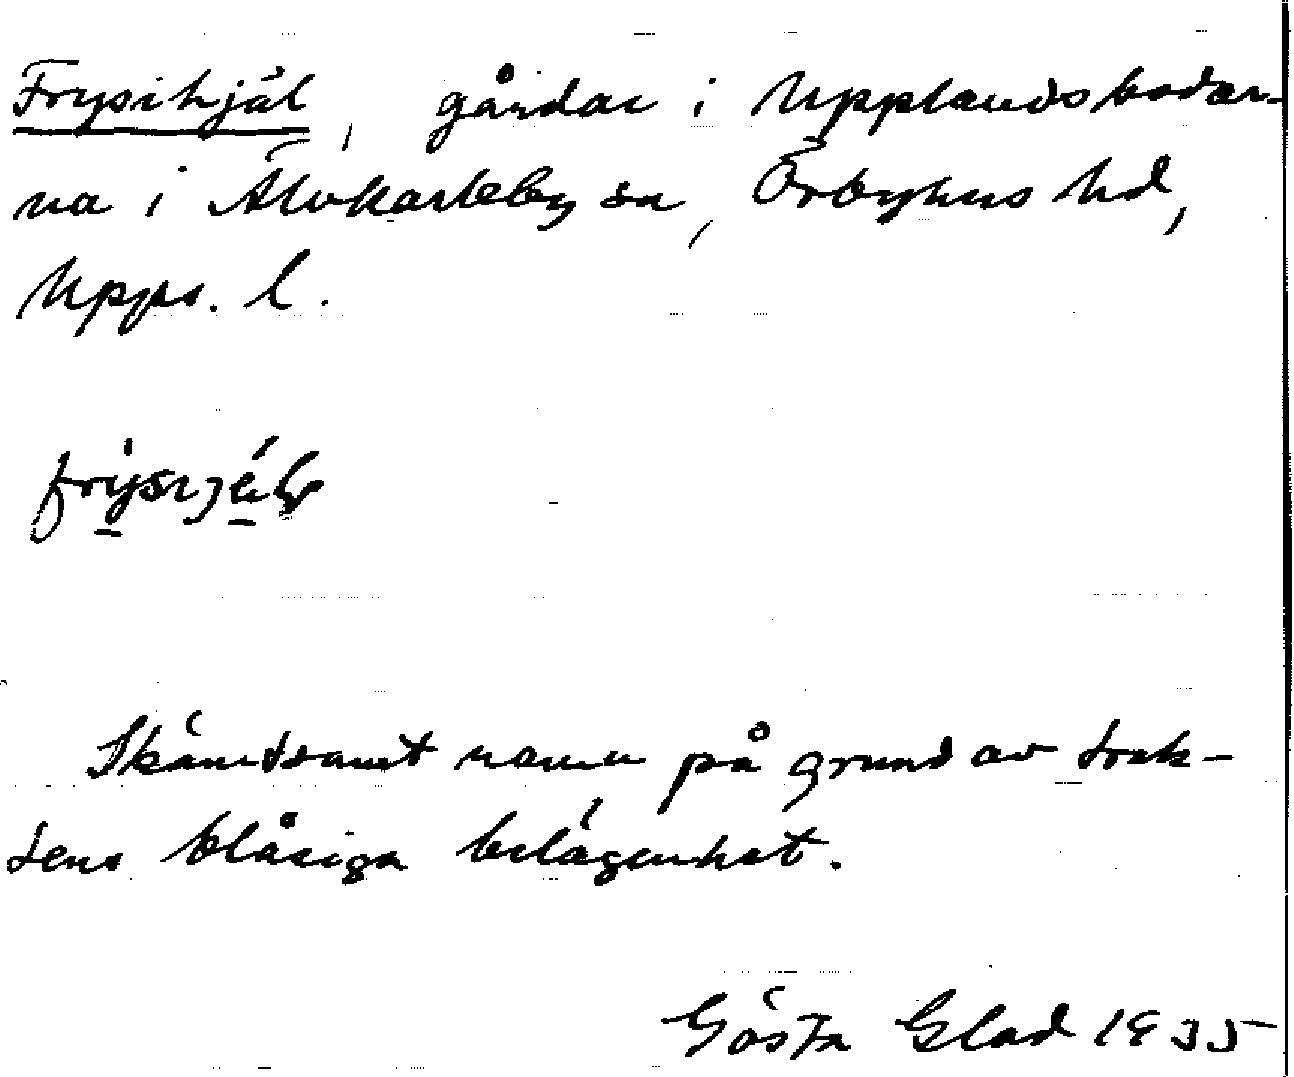 Frysihjäl, gårdar i Upplandsbodar-
na i Älvkarleby sn, Örbyhus hd,
Upps. l.
Skämtsamt namn på grund av trak-
tens blåsiga belägenhet.
Gösta Glad 1935